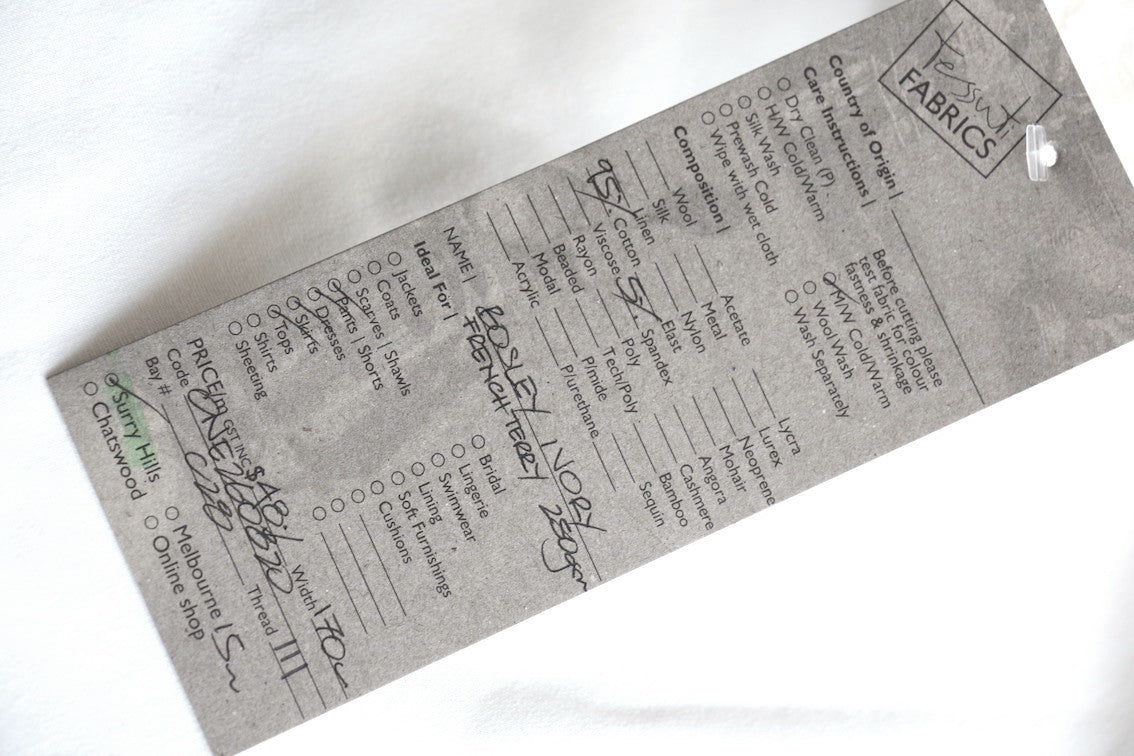 Tessuti
FABRICS
Country of Origin |
Care Instructions |
Before cutting please
test fabric for colour
fastness & shrinkage
Dry Clean (P)
H/W Cold/Warm
Silk Wash
Prewash Cold
Wipe with wet cloth
M/W Cold/Warm
Wool Wash
Wash Separately
Composition |
Wool
Silk
Linen
95% Cotton
Viscose
Rayon
Beaded
Modal
Acrylic
Acetate
Metal
Nylon
Elast
5% Spandex
Poly
Tech/Poly
P/mide
P/urethane
Lycra
Lurex
Neoprene
Mohair
Angora
Cashmere
Bamboo
Sequin
NAME | BOSLEY IVORY
FRENCH TERRY 280gsm
Ideal For |
Jackets
Coats
Scarves | Shawls
Pants | Shorts
Dresses
Skirts
Tops
Shirts
Sheeting
Bridal
Lingerie
Swimwear
Lining
Soft Furnishings
Cushions
PRICE/m GST INC Width 170cm
Code Thread III
Bay # C280
Surry Hills
Chatswood
Melbourne
Online shop